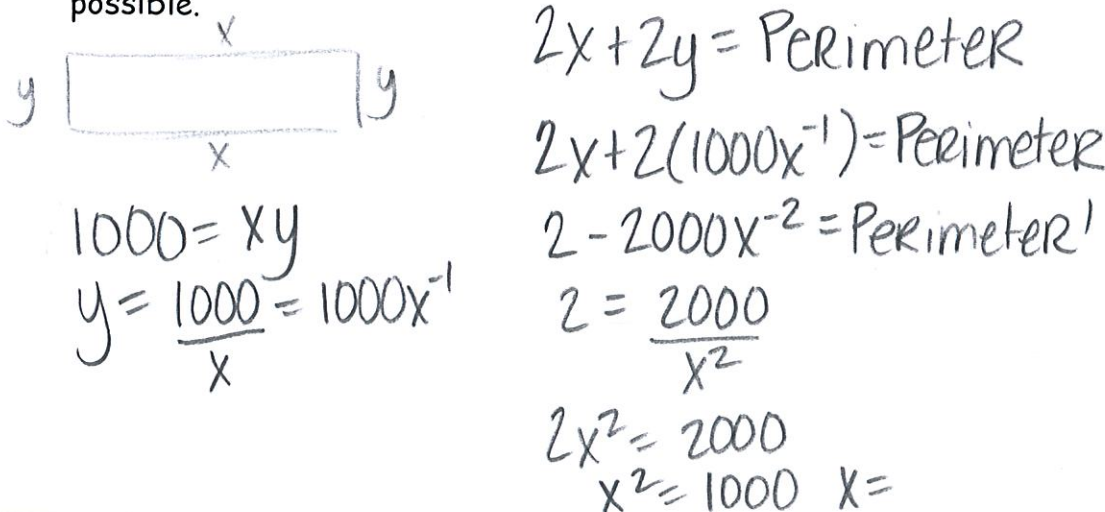 possible.
x
y y
x
1000 = xy
y = 1000/x = 1000x⁻¹
2x + 2y = PERimeteR
2x + 2(1000x⁻¹) = PERimeteR
2 - 2000x⁻² = PERimeteR'
2 = 2000/x²
2x² = 2000
x² = 1000 x =